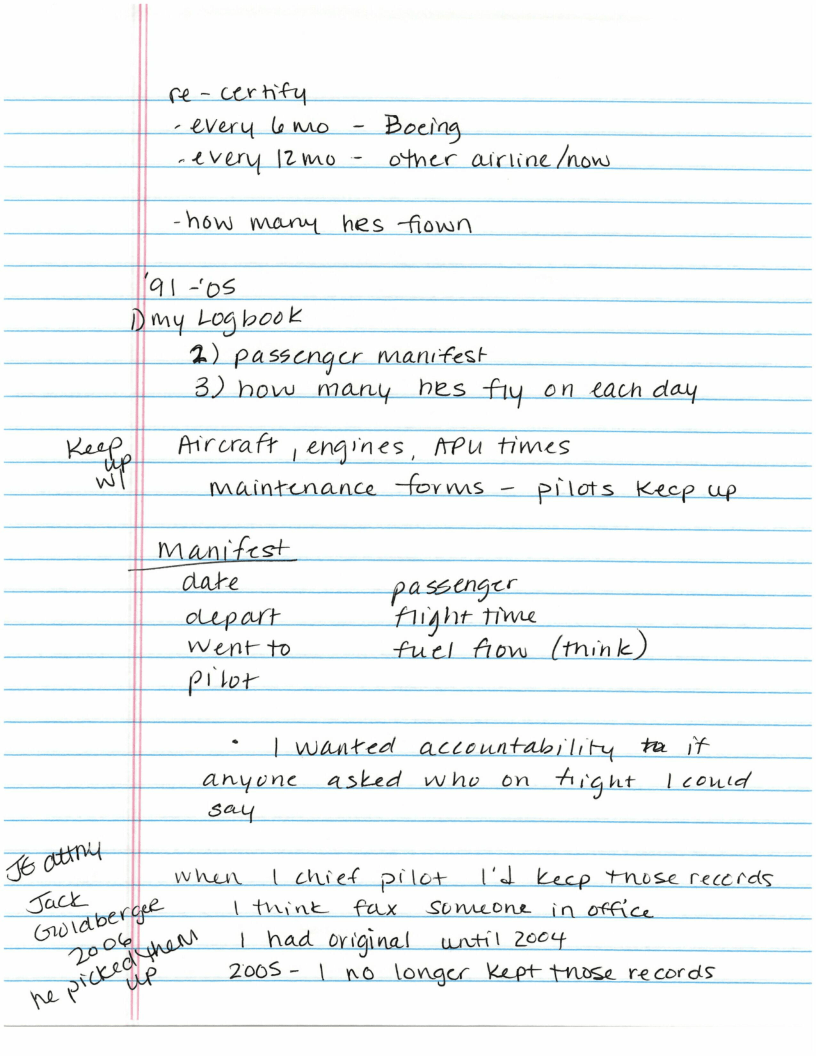 re - certify
- every 6 mo - Boeing
- every 12 mo - other airline/now
- how many hrs flown
'91 - '05
1) my Logbook
2) passenger manifest
3) how many hrs fly on each day
Keep up w/
Aircraft, engines, APU times
maintenance forms - pilots keep up
Manifest
date passenger
depart flight time
went to fuel flow (think)
pilot
• I wanted accountability to if
anyone asked who on flight I could
say
JE attny
Jack
Goldberger
2006
he picked them
up
when I chief pilot I'd keep those records
I think fax someone in office
I had original until 2004
2005 - I no longer kept those records